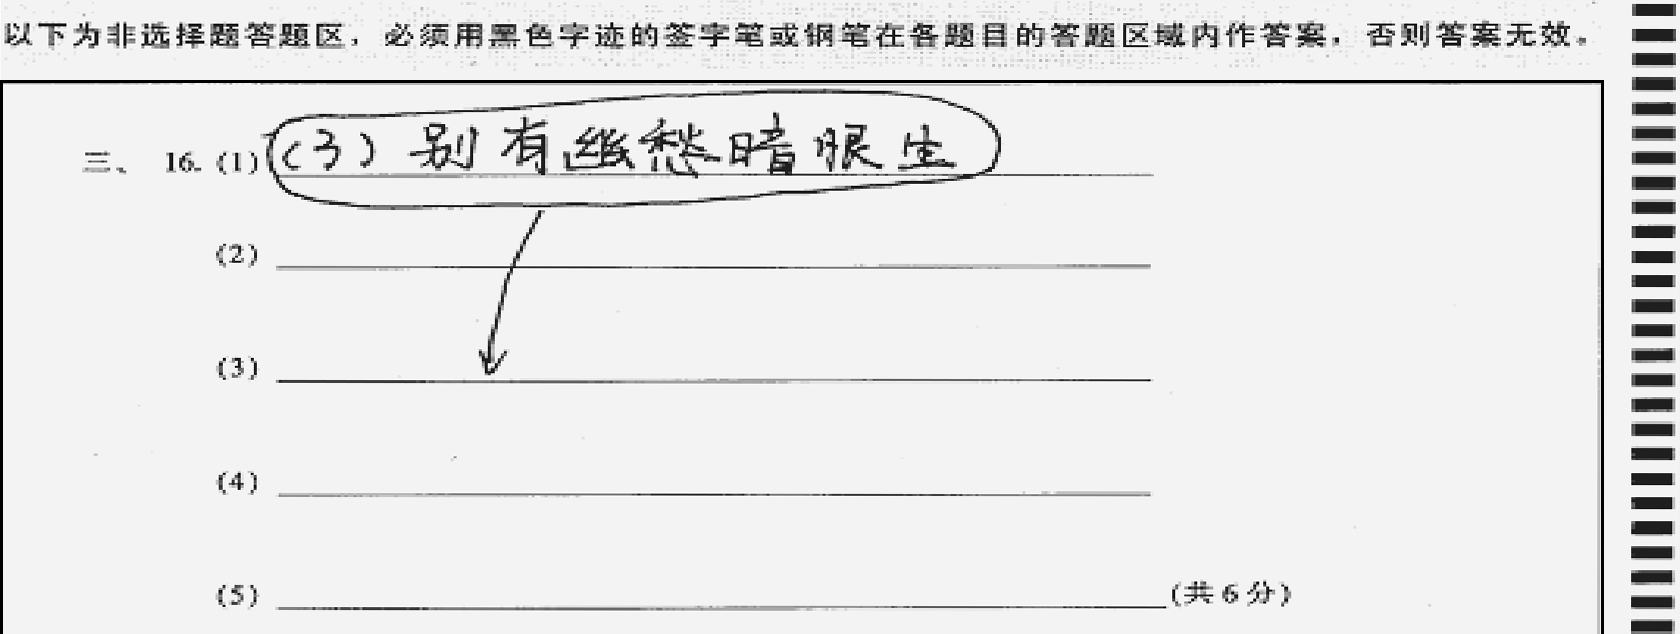 以下为非选择题答题区，必须用黑色字迹的签字笔或钢笔在各题目的答题区域内作答案，否则答案无效。
三、 16. (1) (3) 别有幽愁暗恨生
(2)
(3)
(4)
(5) (共 6 分)